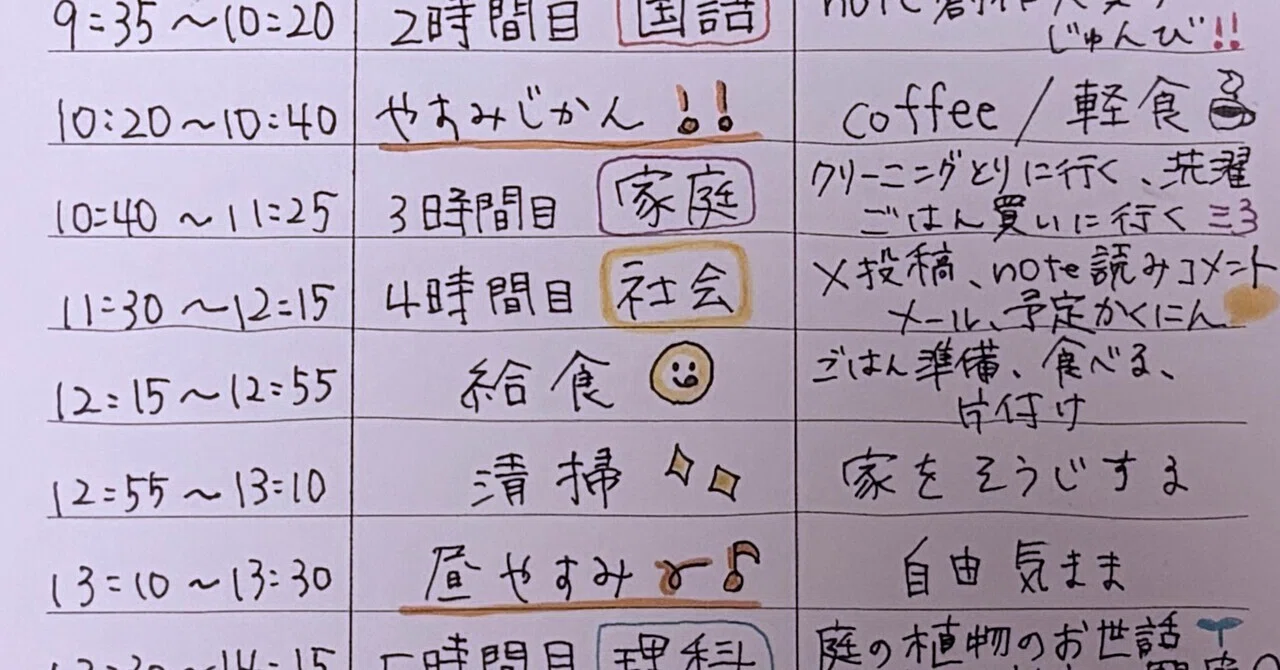 9:35〜10:20 2時間目 国語
じゅんび!!
10:20〜10:40 やすみじかん!! coffee / 軽食
10:40〜11:25 3時間目 家庭 クリーニングとりに行く、洗濯
ごはん買いに行く ミ3
11:30〜12:15 4時間目 社会 X投稿、note読みコメント
メール、予定かくにん
12:15〜12:55 給食 ごはん準備、食べる、
片付け
12:55〜13:10 清掃 家をそうじする
13:10〜13:30 昼やすみ〜♪ 自由気まま
5時間目 理科 庭の植物のお世話